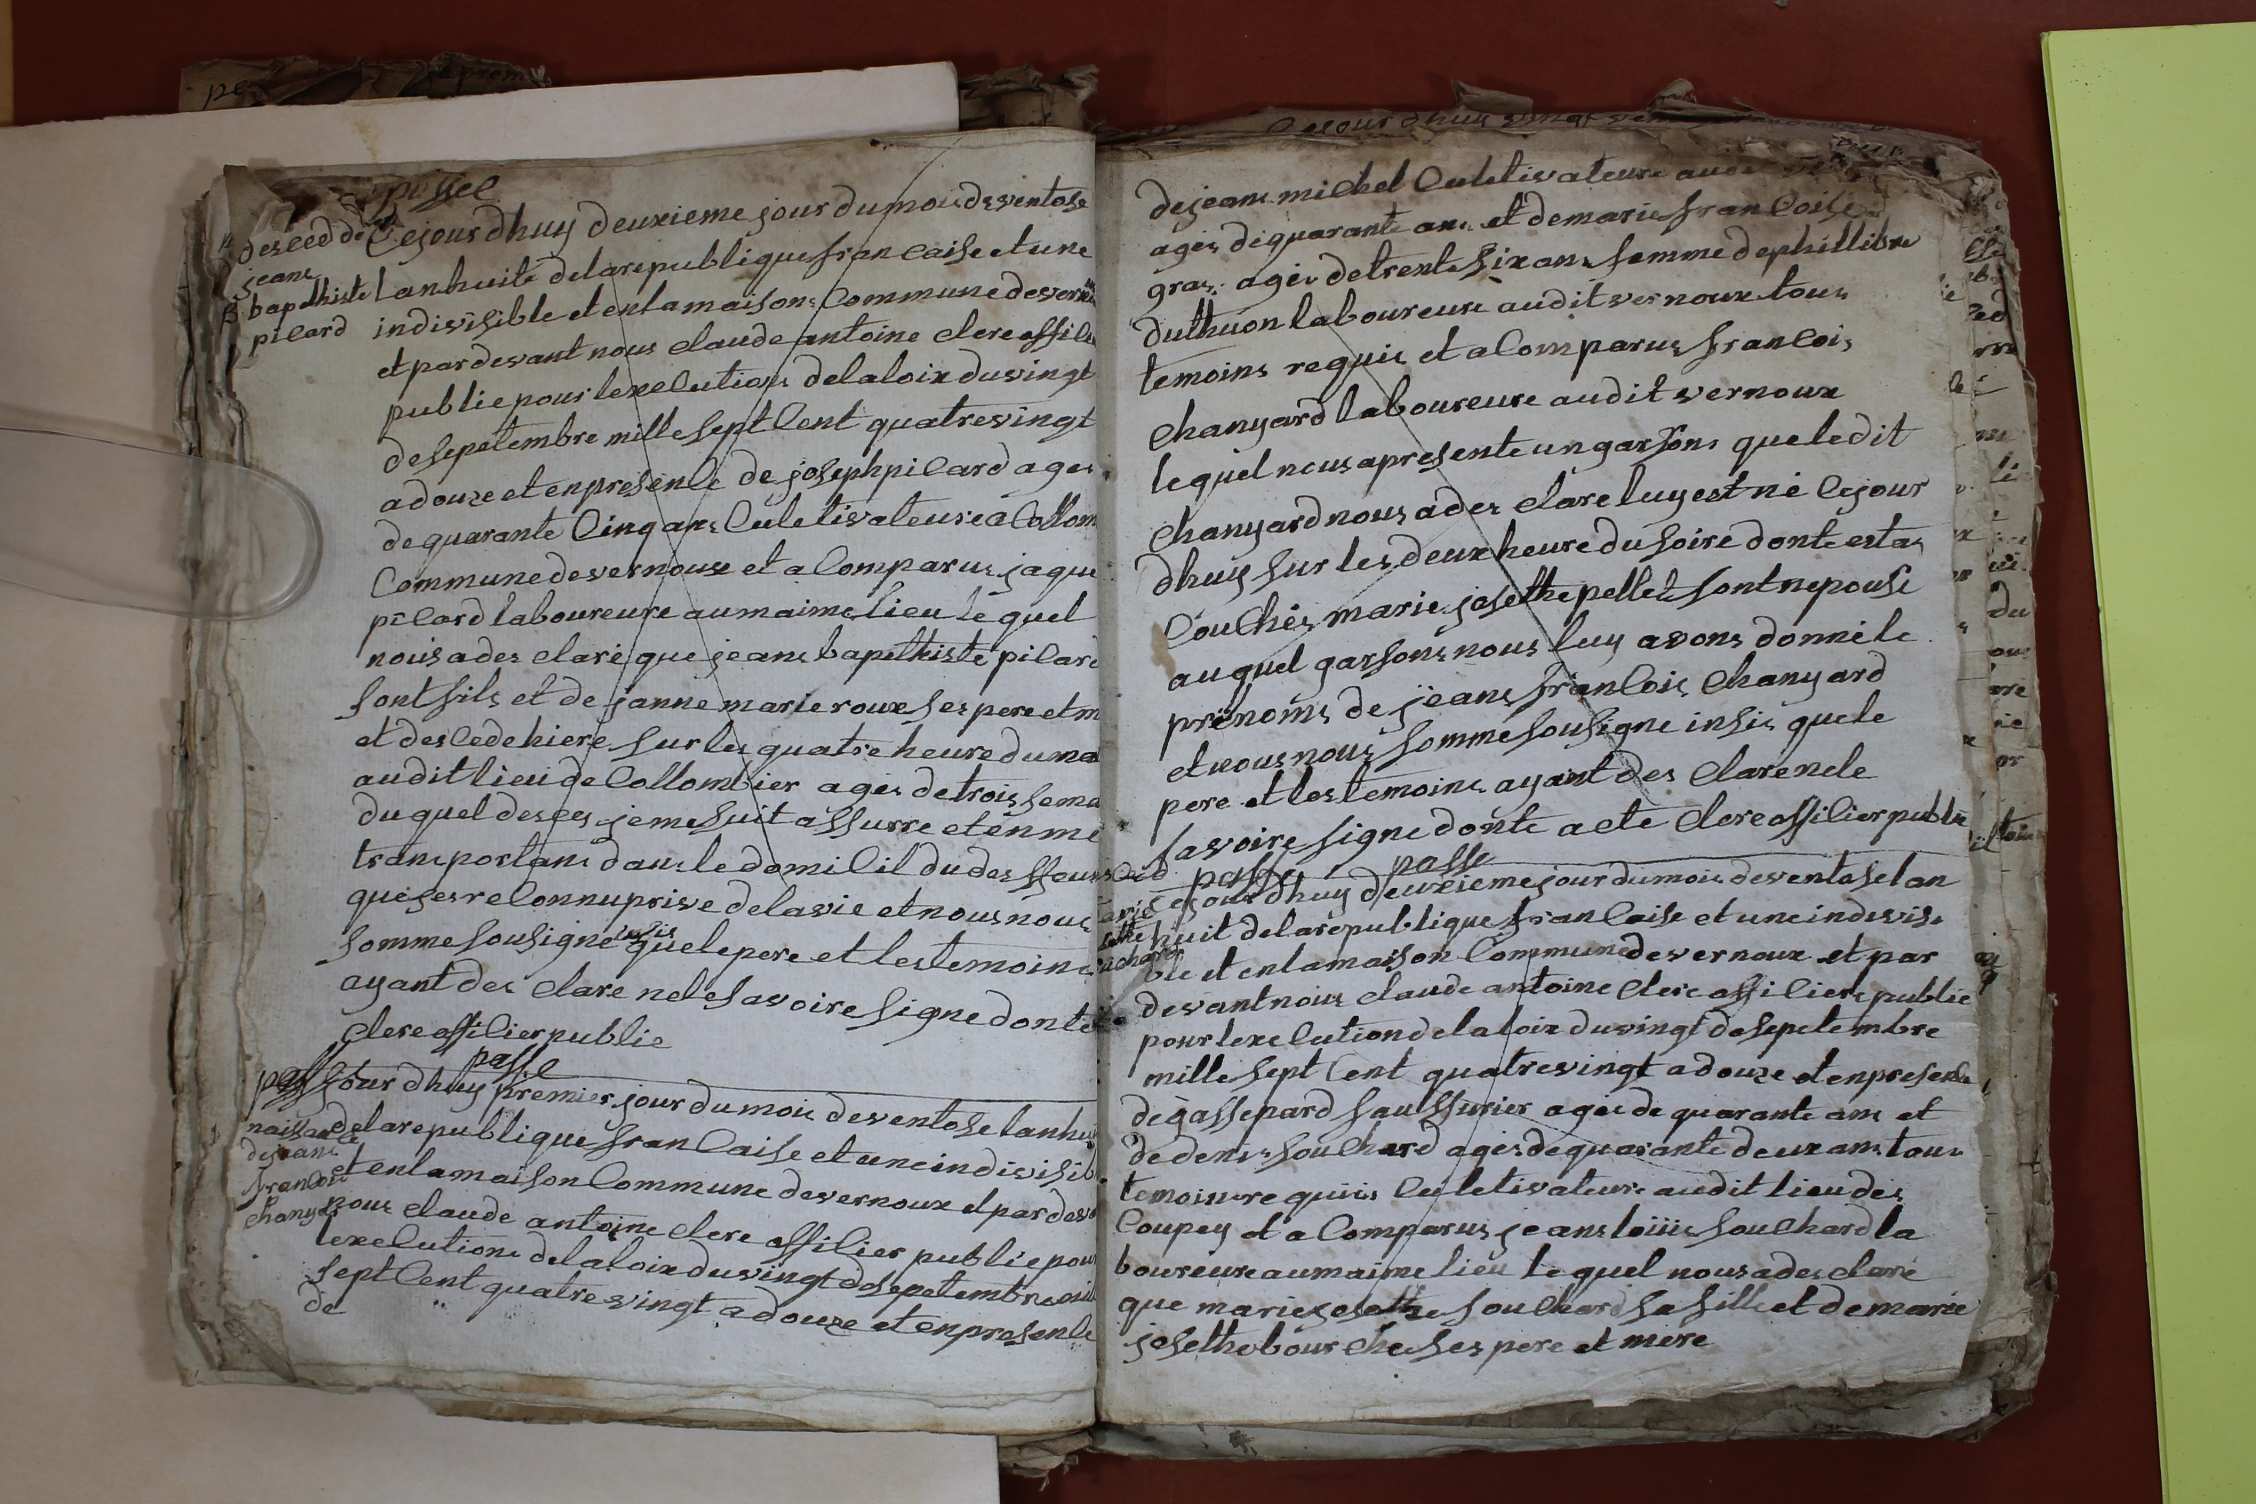 passee
desced de
jeans
bapthiste
picard
Cejourdhuy deuxieme jour du mois de ventose
lanhuite delarepublique francaise et une
indivisible et enlamaisons Commune devernoux
et pardevant nous claude antoine clere officie
publie pour lexecutions delaloix duvingt
desepetembre mille sept Cent quatrevingt
adouze et enpresence de joseph picard ages
dequarante Cinq ans Culetivateure a Collom
Commune devernoux et a Comparus jaque
picard laboureure aumaime lieu le quel
nous a des claré que jeans bapthiste picard
sont fils et de janne marie roux ses pere et m
et descede hiere sur les quatre heure du ma
audit lieu de Collombier ages detrois sema
duquel deses je me suit assurre et en me
transportans dans le domicil du deffeunt
que jes reConnu prive delavie et nous nous
somme sousigne insis que le pere et les temoins
ayant des clare nele savoire signe donte
clere officier publie
passe passe
naissance
dejeans
francois
chanyard
Cejour dhuy premier jour du mois de ventose lanhui
delarepublique francaise et une indivisib
et enlamaison Commune devernoux et pardeva
nous claude antoine clere officier publie pour
lexecutions delaloix duvingt desepetembre mil
sept Cent quatrevingt adouze et enpresence
de
dejeans michel Culetivateure aud
ages dequarante ans et demarie francoise
gras agée detrente six ans femme dephillibre
duthuon laboureure audit vernoux tous
temoins requis et a Comparus francois
chanyard laboureure audit vernoux
lequel nous apresente un garsons que ledit
chanyard nous a des clare luy est né Cejour
dhuy sur les deux heure du soire donte estas
Couchés marie josethe pellet sont nepouse
auquel garsons nous luy avons donné le
prenoms de jeans francois chanyard
et nous nous somme sousigne insis que le
pere et les temoins ayant des clare nele
savoire signe donte acte clere officier publie
passe passe
Cejour dhuy deuxieme jour du mois de ventose lan
huit delarepublique francaise et une indevisi
ble et enlamaison Commune devernoux et par
devant nous claude antoine clere officiere publie
pour lexecution delaloix duvingt desepetembre
mille sept Cent quatrevingt adouze et enpresence
de gassepard saussurier ages de quarante ans et
de denis souchard ages dequarante deux ans tous
temoins requiis Culetivateure audit lieu des
Coupey et a Comparus jeans loiiis souchard la
boureure aumaime lieu le quel nous a des claré
que marie josethe souchard sa fille et de marie
josethe bourchee ses pere et mere